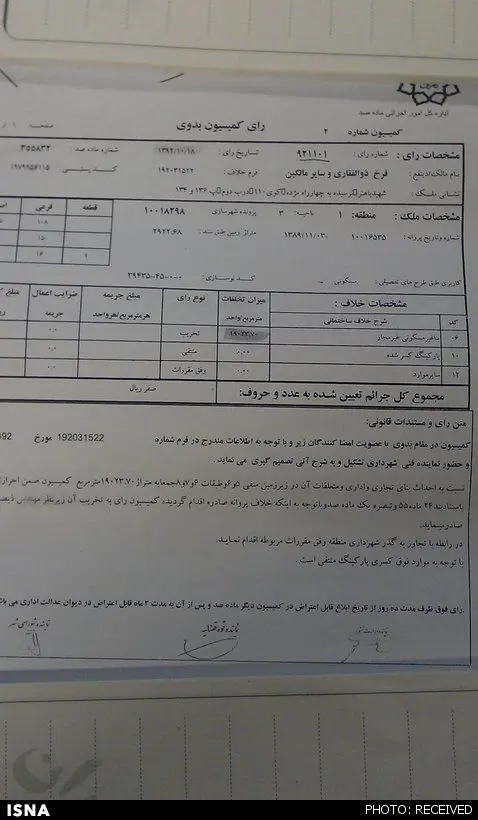 اداره کل امور اجرائی ماده صد
کمیسیون شماره ۲
رای کمیسیون بدوی
صفحه ۱
مشخصات رای : شماره رای : ۹۲۱۱۰۱ تاریخ رای : ۱۳۹۲/۱۰/۱۸ شماره ماده صد : ۳۵۵۸۳۲
نام مالک/ذینفع : فرخ ذوالفقاری و سایر مالکین فرم خلاف : ۱۹۲۰۳۱۵۲۲ کدپستی : ۱۹۷۹۹۵۶۱۱۵
نشانی ملک :
مشخصات ملک : منطقه: ۱ ناحیه: ۳ پرونده شهرسازی : ۱۰۰۱۸۲۹۸
شماره وتاریخ پروانه : ۱۰۰۱۶۵۳۵ -۱۳۸۹/۱۱/۰۳ متراژ زمین طبق سند : ۲۹۲۲.۶۸
قطعه فرعی
۱۰۸
۱۵
۱ ۱۶
کاربری طبق طرح های تفصیلی : مسکونی کد نوسازی :
مشخصات خلاف : میزان تخلفات مترمربع/واحد نوع رای مبلغ جریمه هرمترمربع/هرواحد ضرایب اعمال جریمه
کد شرح خلاف ساختمانی
۰۶ بناغیرمسکونی غیرمجاز ۱۹۰۲۳.۷۰ تخریب ۰.۰
۱۰ پارکینگ کسر شده ۰.۰۰ منتفی ۰.۰
۱۲ سایرموارد ۰.۰۰ وفق مقررات ۰.۰
مجموع کل جرائم تعیین شده به عدد و حروف: ۰ صفر ریال
متن رای و مستندات قانونی:
کمیسیون در مقام بدوی با عضویت امضا کنندگان زیر و با توجه به اطلاعات مندرج در فرم شماره 192031522 مورخ
و حضور نماینده فنی شهرداری تشکیل و به شرح آتی تصمیم گیری می نماید .
نسبت به احداث بنای تجاری واداری ومتعلقات آن در زیرزمین منفی ۵و۶وطبقات ۶و۷و۸جمعابه متراژ۱۹۰۲۳.۷۰مترمربع کمیسیون ضمن احراز
باستنادبند۲۴ ماده۵۵ وتبصره یک ماده صدوباتوجه به اینکه خلاف پروانه صادره اقدام گردیده کمیسیون رای به تخریب آن زیرنظر مهندس
صادرمینماید.
در رابطه با تجاوز به گذر شهرداری منطقه وفق مقررات مربوطه اقدام نماید.
با توجه به موارد فوق کسری پارکینگ منتفی است .
رای فوق ظرف مدت ده روز از تاریخ ابلاغ قابل اعتراض در کمیسیون دیگر ماده صد و پس از آن به مدت ۳ ماه قابل اعتراض در دیوان عدالت اداری می
نماینده وزارت کشور نماینده قوه قضاییه نماینده شورای شهر
ISNA
PHOTO: RECEIVED